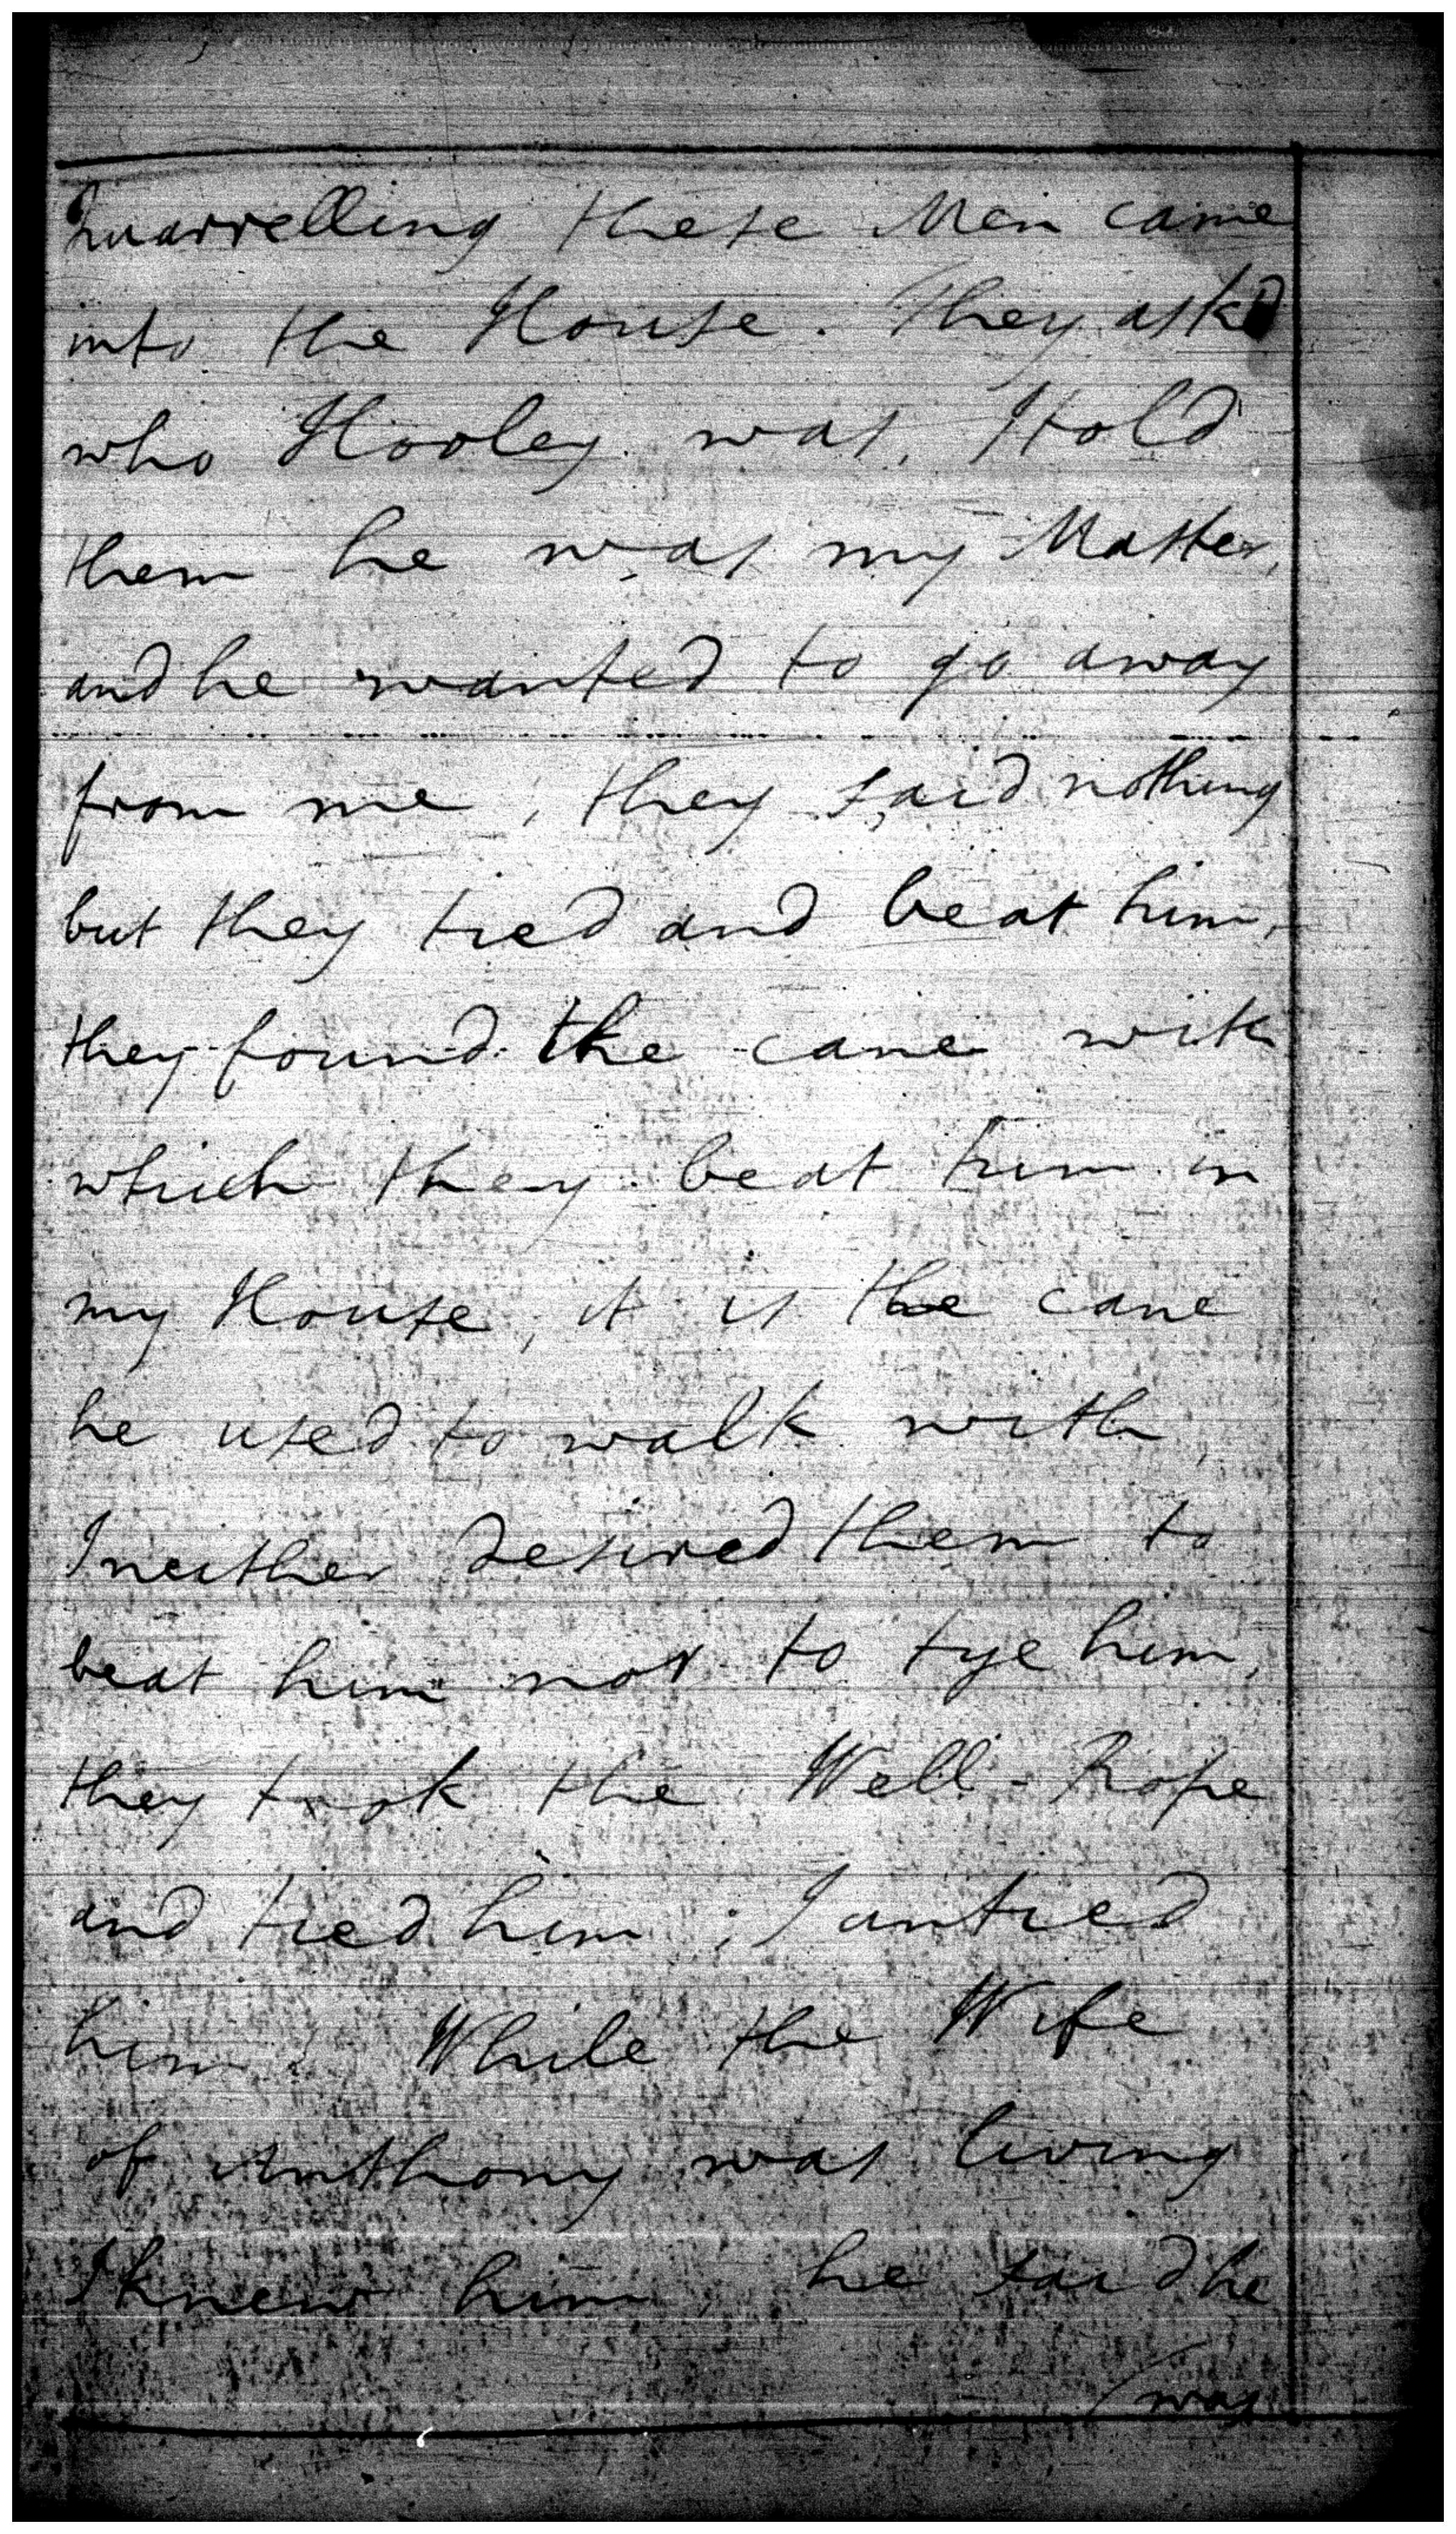 quarrelling these Men came
into the House. They ask'd
who Hooley was, I told
them he was my Master,
and he wanted to go away
from me, they said nothing
but they tied and beat him,
they found the cane with
which they beat him in
my House, it is the cane
he used to walk with,
I neither desired them to
beat him nor to tye him,
they took the Well-Rope
and tied him; I untied
him. While the Wife
of Anthony was living
I knew him, he said he
was